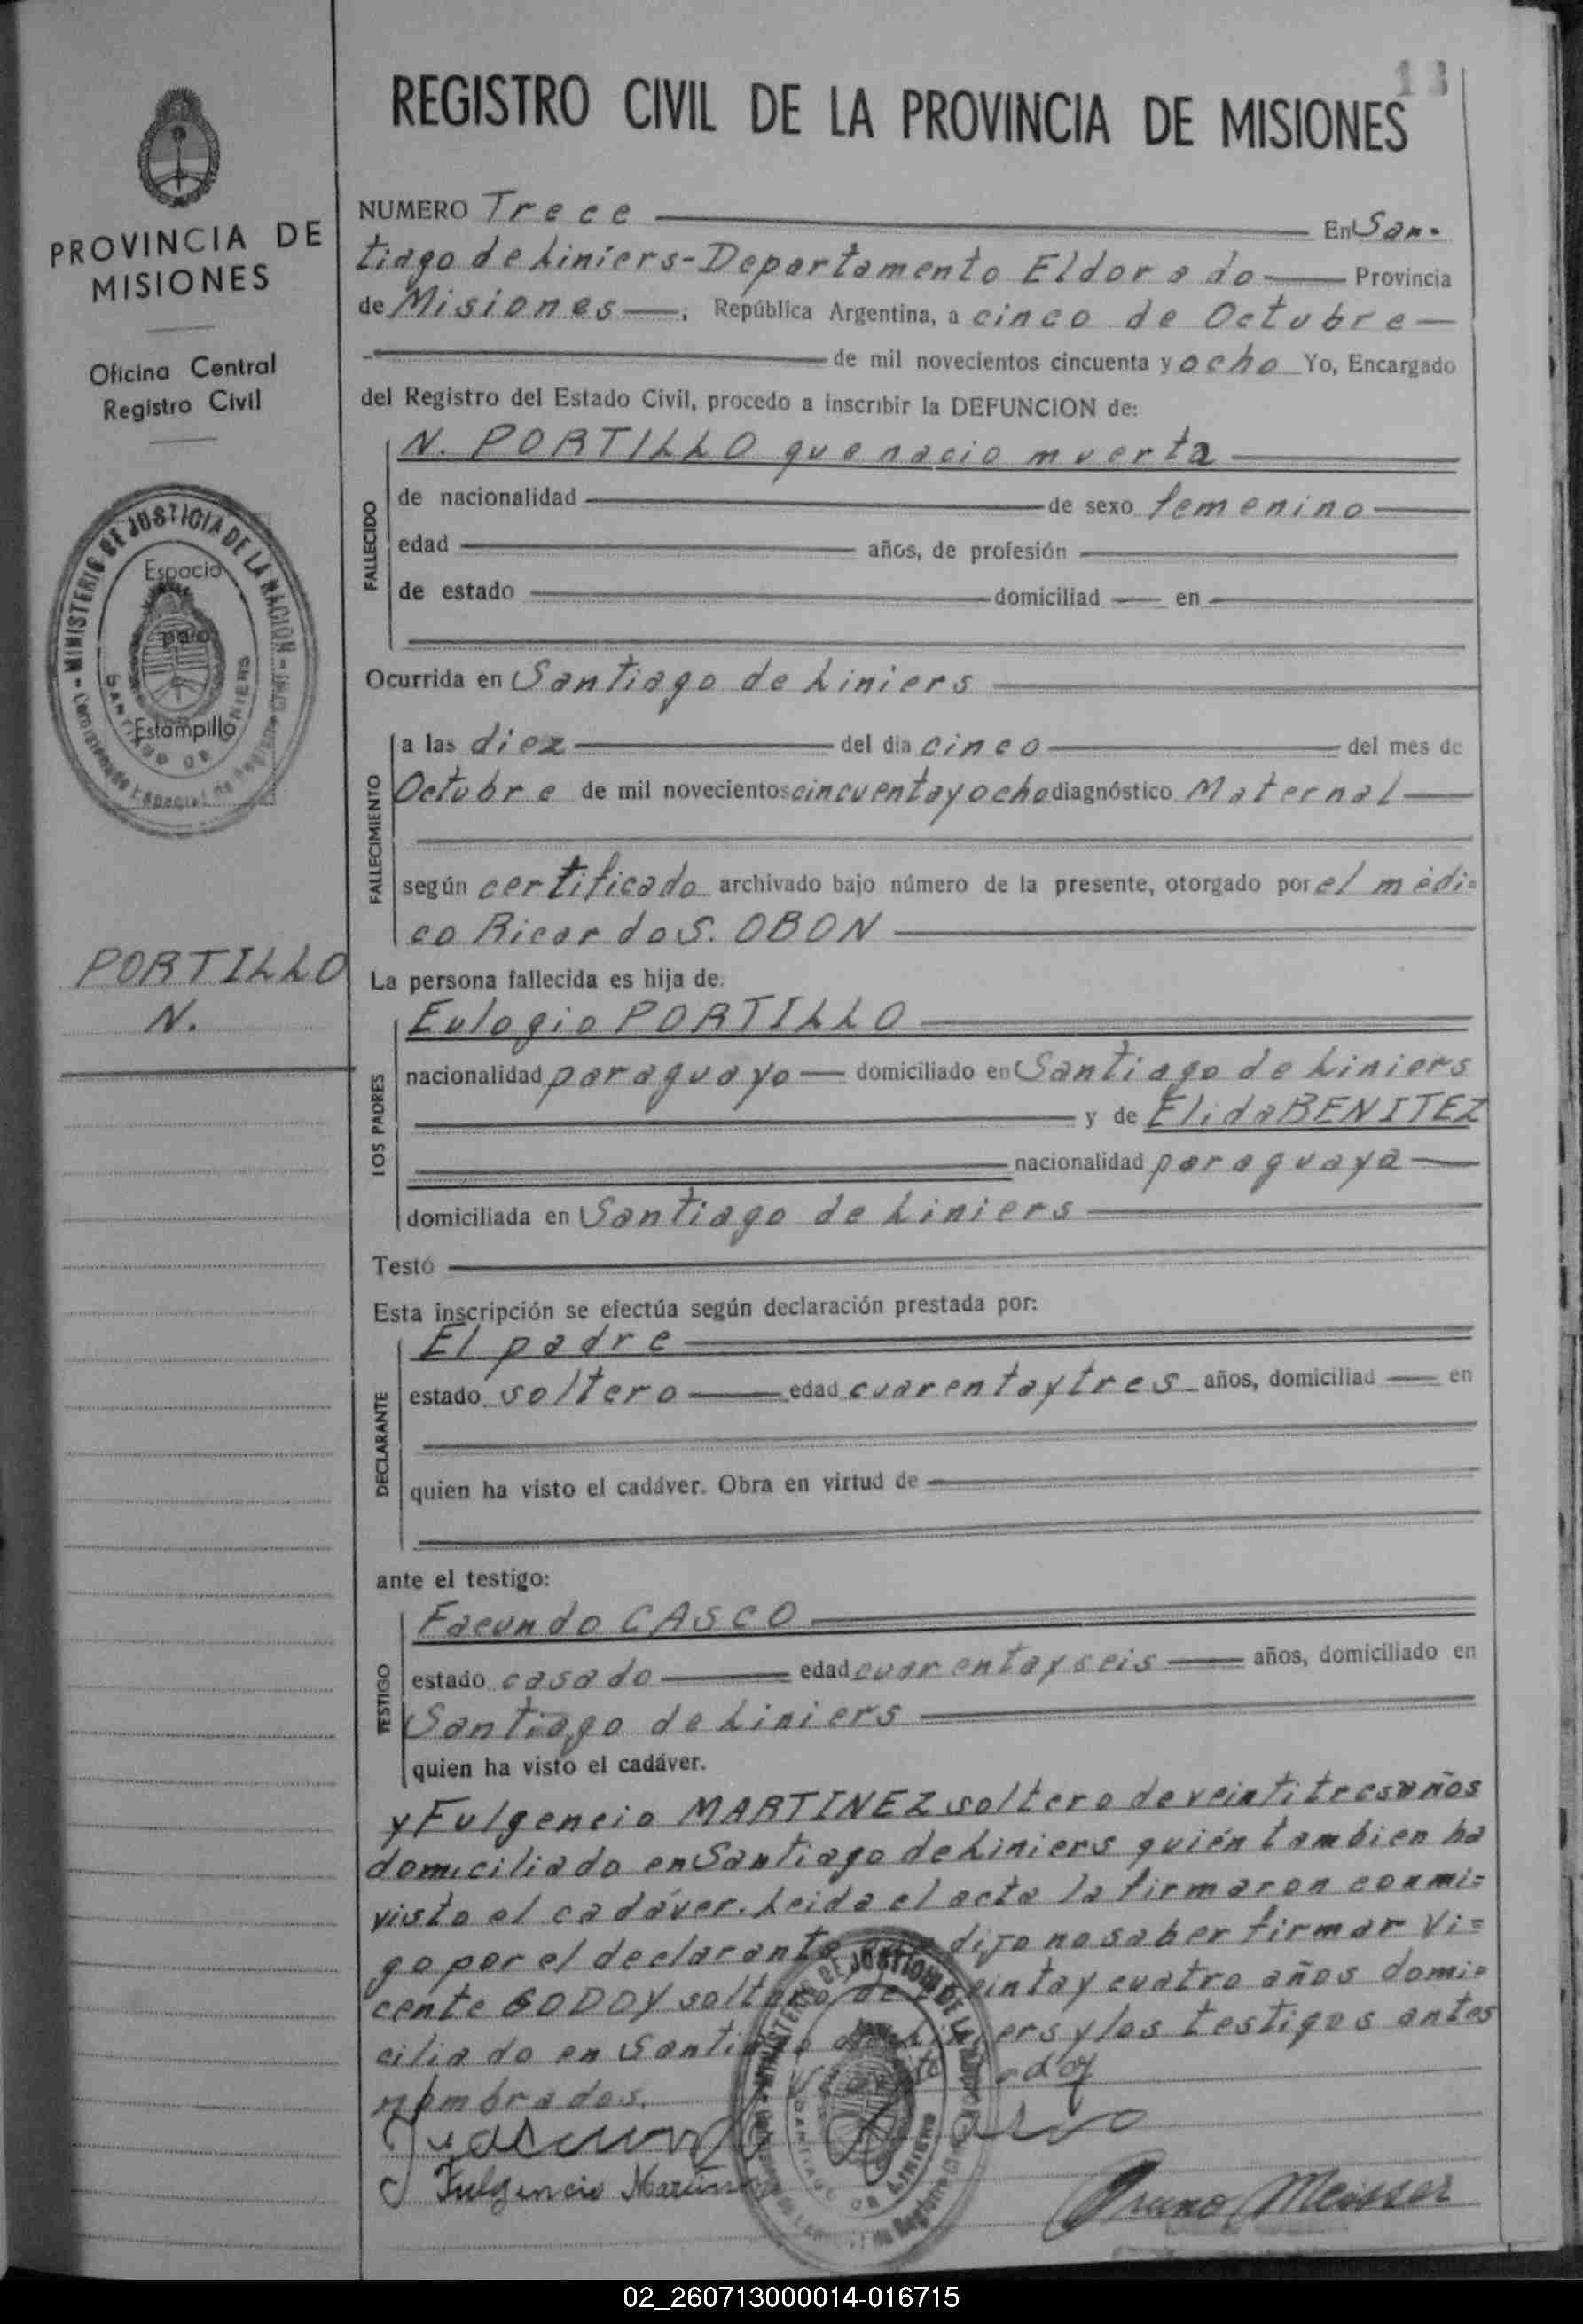 13
REGISTRO CIVIL DE LA PROVINCIA DE MISIONES
PROVINCIA DE
MISIONES
Oficina Central
Registro Civil
MINISTERIO DE JUSTICIA DE LA NACION
Espacio
para
Estampilla
SANTIAGO DE LINIERS
PORTILLO
N.
NUMERO Trece En San-
tiago de Liniers-Departamento Eldorado Provincia
de Misiones, República Argentina, a cinco de Octubre
de mil novecientos cincuenta y ocho Yo, Encargado
del Registro del Estado Civil, procedo a inscribir la DEFUNCION de:
FALLECIDO
N. PORTILLO que nacio muerta
de nacionalidad de sexo femenino
edad años, de profesión
de estado domiciliad en
Ocurrida en Santiago de Liniers
FALLECIMIENTO
a las diez del dia cinco del mes de
Octubre de mil novecientos cincuenta y ocho diagnóstico Maternal
según certificado archivado bajo número de la presente, otorgado por el médi=
co Ricardo S. OBON
La persona fallecida es hija de:
LOS PADRES
Eulogio PORTILLO
nacionalidad paraguayo domiciliado en Santiago de Liniers
y de Elida BENITEZ
nacionalidad paraguaya
domiciliada en Santiago de Liniers
Testó
Esta inscripción se efectúa según declaración prestada por:
DECLARANTE
El padre
estado soltero edad cuarenta y tres años, domiciliad en
quien ha visto el cadáver. Obra en virtud de
ante el testigo:
TESTIGO
Facundo CASCO
estado casado edad cuarenta y seis años, domiciliado en
Santiago de Liniers
quien ha visto el cadáver.
y Fulgencio MARTINEZ soltero de veintitres años
domiciliado en Santiago de Liniers quién tambien ha
visto el cadáver. Leida el acta la firmaron conmi=
go por el declarante que dijo no saber firmar Vi=
cente GODOY soltero de treinta y cuatro años domi=
ciliado en Santiago de Liniers y los testigos antes
nombrados.
Fulgencio Martinez
Bruno Meisser
MINISTERIO DE JUSTICIA DE LA NACION
SANTIAGO DE LINIERS
02_260713000014-016715